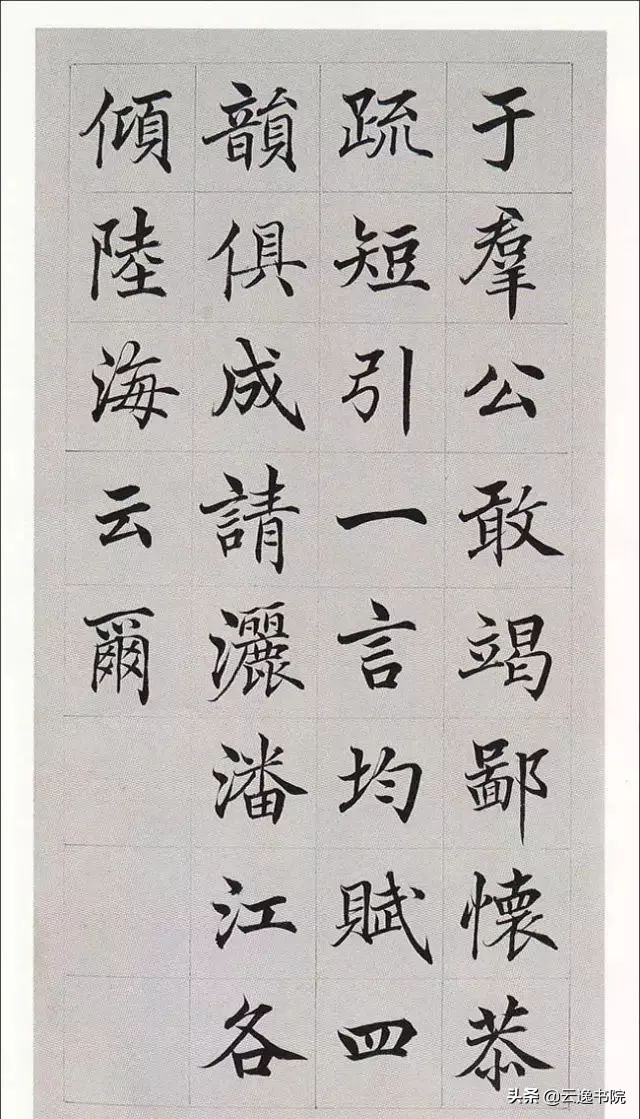 于羣公敢竭鄙懷恭
疏短引一言均賦四
韻俱成請灑潘江各
傾陸海云爾
头条 @云逸书院